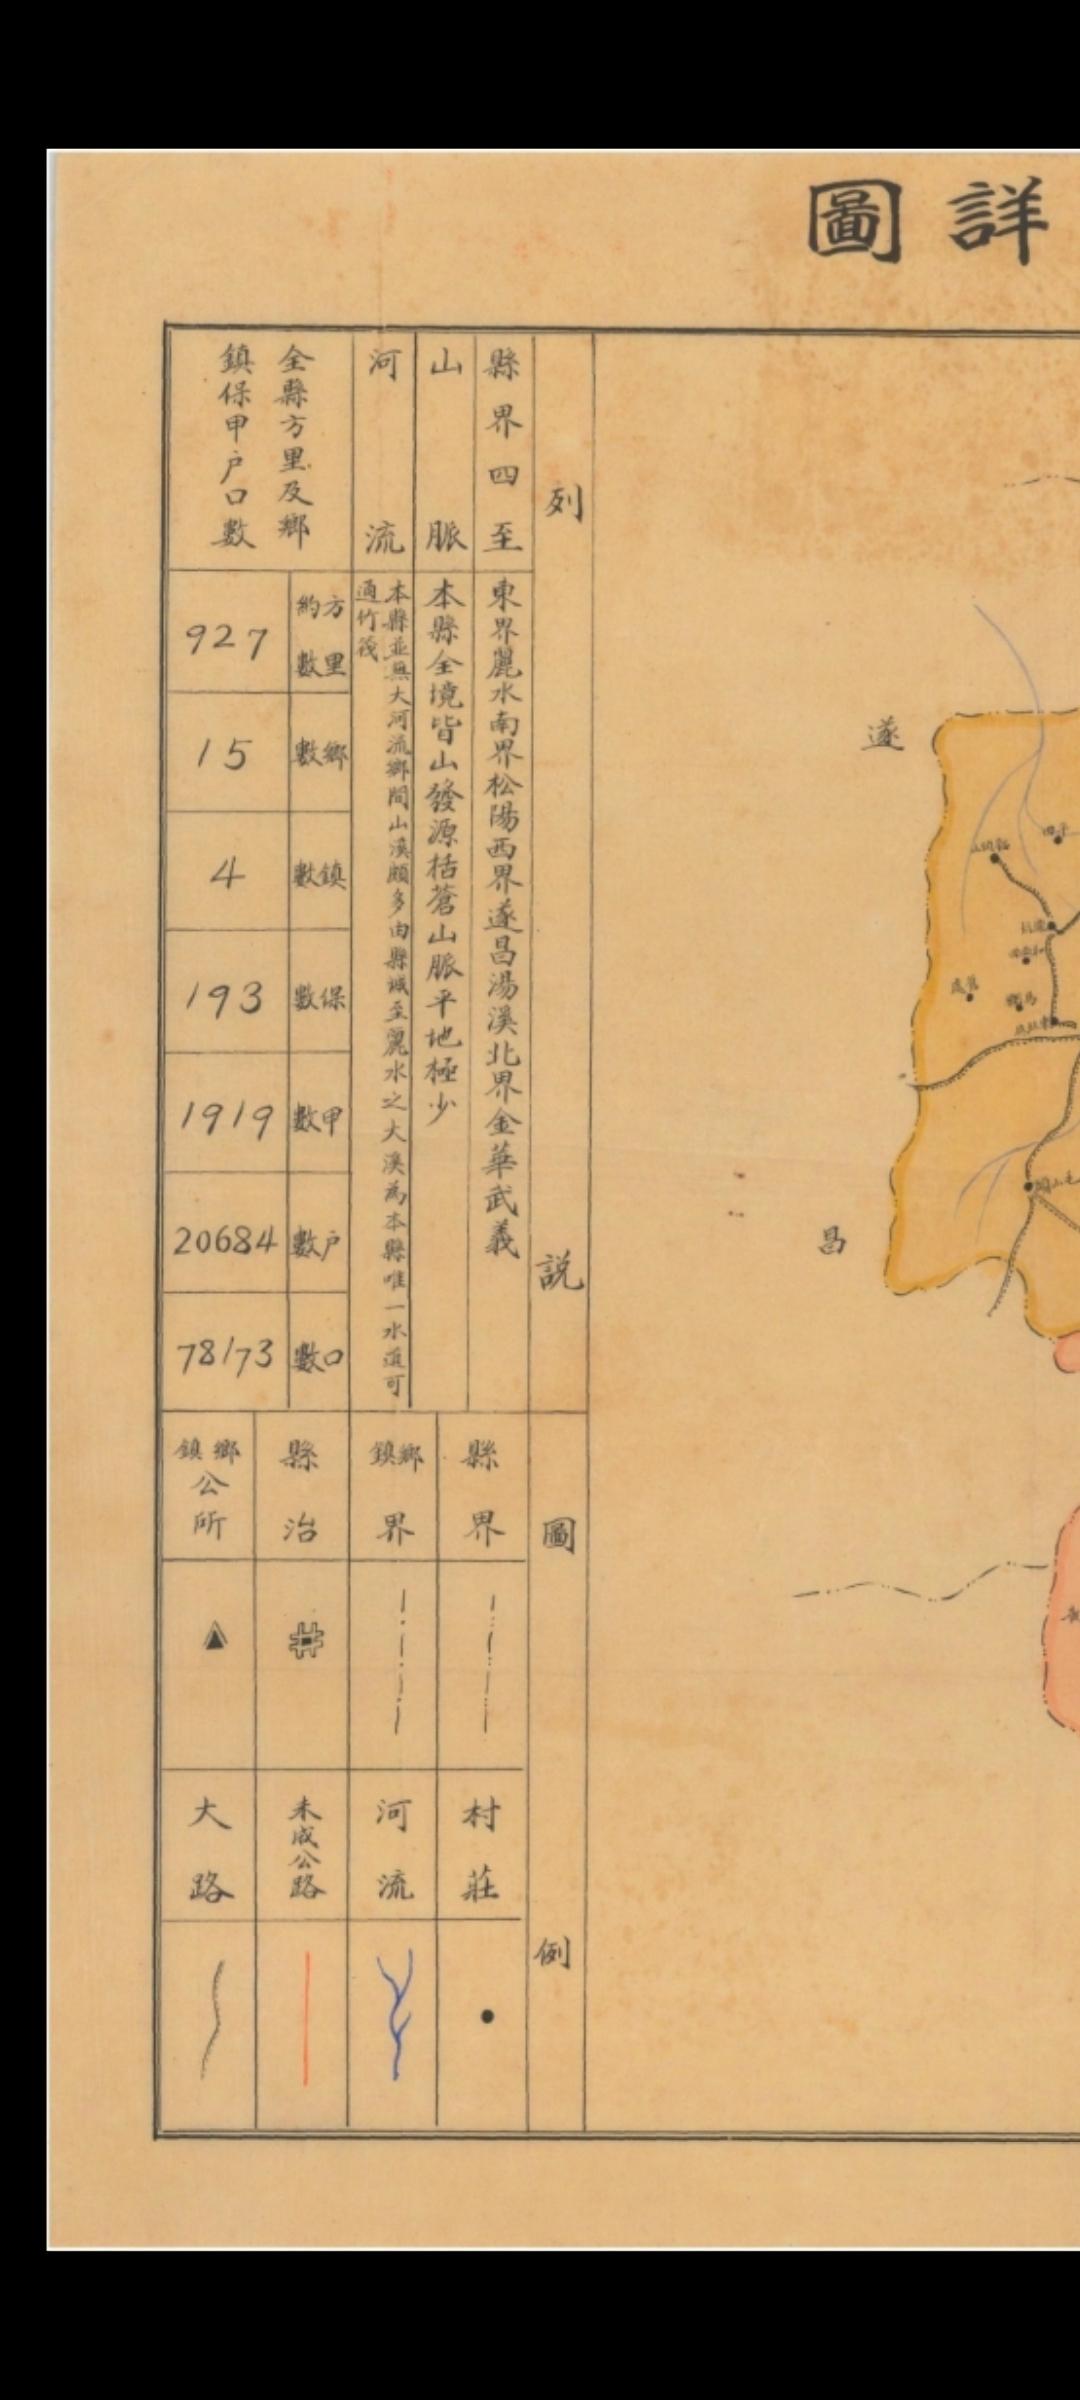 詳圖
列說
縣界四至
東界麗水南界松陽西界遂昌湯溪北界金華武義
山脈
本縣全境皆山發源括蒼山脈平地極少
河流
本縣並無大河流鄉間山溪頗多由縣城至麗水之大溪為本縣唯一水道可
通竹筏
全縣方里及鄉
鎮保甲户口數
方里約數
927
鄉數
15
鎮數
4
保數
193
甲數
1919
户數
20684
口數
78173
圖例
縣界
鄉鎮界
縣治
鄉鎮公所
村莊
河流
未成公路
大路
遂
昌